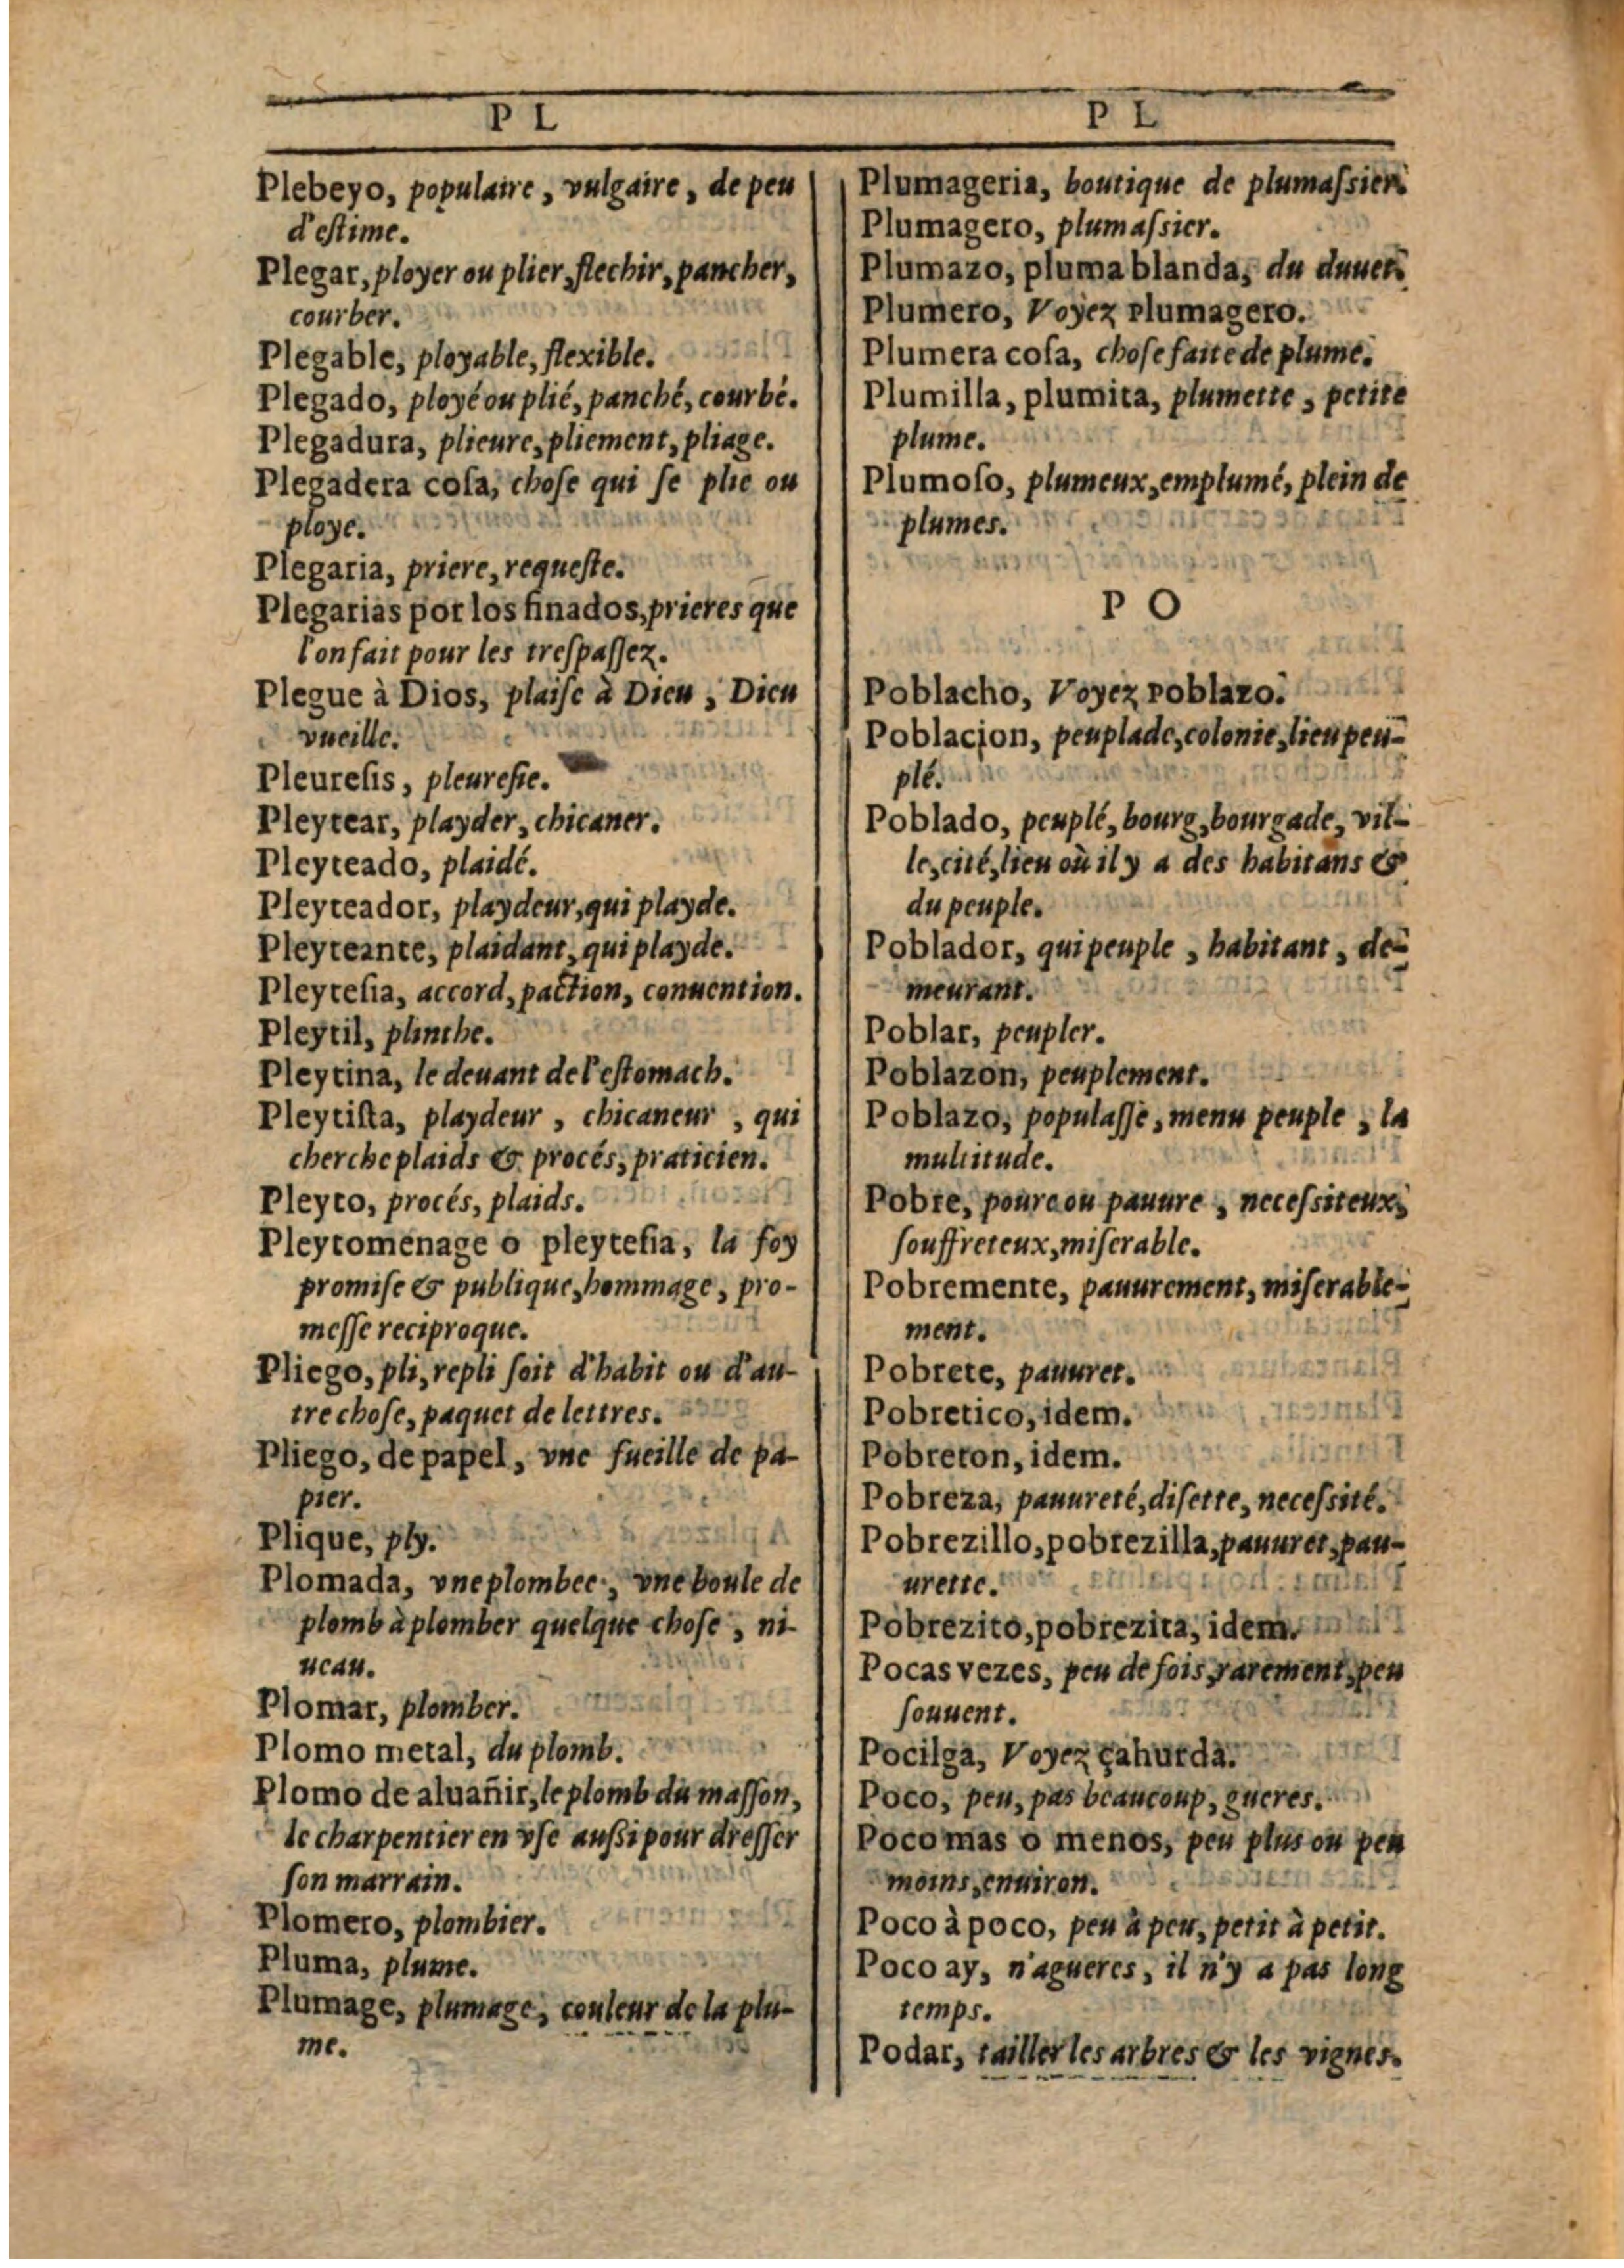 P L
Plebeyo, populaire, vulgaire, de peu
d'eſtime.
Plegar, ployer ou plier, flechir, pancher,
courber.
Plegable, ployable, flexible.
Plegado, ployé ou plié, panché, courbé.
Plegadura, plieure, pliement, pliage.
Plegadera coſa, choſe qui ſe plie ou
ploye.
Plegaria, priere, requeſte.
Plegarias por los finados, prieres que
l'on fait pour les treſpaſſez.
Plegue à Dios, plaiſe à Dieu, Dieu
vueille.
Pleureſis, pleureſie.
Pleytear, playder, chicaner.
Pleyteado, plaidé.
Pleyteador, playdeur, qui playde.
Pleyteante, plaidant, qui playde.
Pleyteſia, accord, paction, conuention.
Pleytil, plinthe.
Pleytina, le deuant de l'eſtomach.
Pleytiſta, playdeur, chicaneur, qui
cherche plaids & procés, praticien.
Pleyto, procés, plaids.
Pleytomenage o pleyteſia, la foy
promiſe & publique, hommage, pro-
meſſe reciproque.
Pliego, pli, repli ſoit d'habit ou d'au-
tre choſe, paquet de lettres.
Pliego, de papel, vne fueille de pa-
pier.
Plique, ply.
Plomada, vne plombee, vne boule de
plomb à plomber quelque choſe, ni-
ueau.
Plomar, plomber.
Plomo metal, du plomb.
Plomo de aluañir, le plomb du maſſon,
le charpentier en vſe auſſi pour dreſſer
ſon marrain.
Plomero, plombier.
Pluma, plume.
Plumage, plumage, couleur de la plu-
me.
P L
Plumageria, boutique de plumaſſier.
Plumagero, plumaſſier.
Plumazo, pluma blanda, du duuet.
Plumero, Voyez Plumagero.
Plumera coſa, choſe faite de plume.
Plumilla, plumita, plumette, petite
plume.
Plumoſo, plumeux, emplumé, plein de
plumes.
P O
Poblacho, Voyez Poblazo.
Poblacion, peuplade, colonie, lieu peu-
plé.
Poblado, peuplé, bourg, bourgade, vil-
le, cité, lieu où il y a des habitans &
du peuple.
Poblador, qui peuple, habitant, de-
meurant.
Poblar, peupler.
Poblazon, peuplement.
Poblazo, populaſſe, menu peuple, la
multitude.
Pobre, poure ou pauure, neceſsiteux,
ſouffreteux, miſerable.
Pobremente, pauurement, miſerable-
ment.
Pobrete, pauuret.
Pobretico, idem.
Pobreton, idem.
Pobreza, pauureté, diſette, neceſsité.
Pobrezillo, pobrezilla, pauuret, pau-
urette.
Pobrezito, pobrezita, idem.
Pocas vezes, peu de fois, rarement, peu
ſouuent.
Pocilga, Voyez çahurda.
Poco, peu, pas beaucoup, gueres.
Poco mas o menos, peu plus ou peu
moins, enuiron.
Poco à poco, peu à peu, petit à petit.
Poco ay, n'agueres, il n'y a pas long
temps.
Podar, tailler les arbres & les vignes.